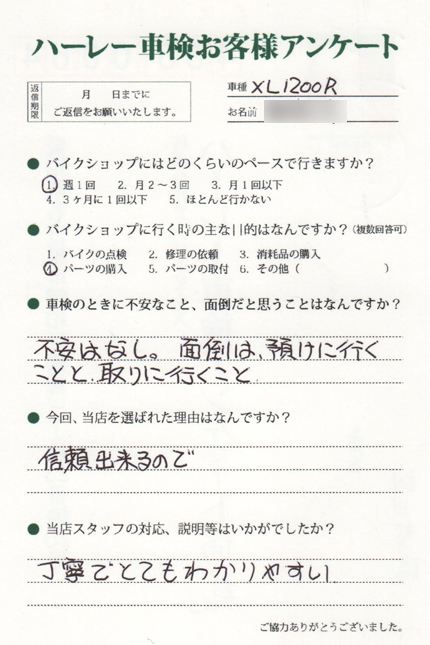 ハーレー車検お客様アンケート
返信期限
月　　日までに
ご返信をお願いいたします。
車種 XL1200R
お名前
● バイクショップにはどのくらいのペースで行きますか？
1. 週1回　2. 月2～3回　3. 月1回以下
4. 3ヶ月に1回以下　5. ほとんど行かない
● バイクショップに行く時の主な目的はなんですか？（複数回答可）
1. バイクの点検　2. 修理の依頼　3. 消耗品の購入
4. パーツの購入　5. パーツの取付　6. その他（　　　　　　　）
● 車検のときに不安なこと、面倒だと思うことはなんですか？
不安はなし。面倒は、預けに行く
ことと、取りに行くこと
● 今回、当店を選ばれた理由はなんですか？
信頼出来るので
● 当店スタッフの対応、説明等はいかがでしたか？
丁寧でとてもわかりやすい
ご協力ありがとうございました。